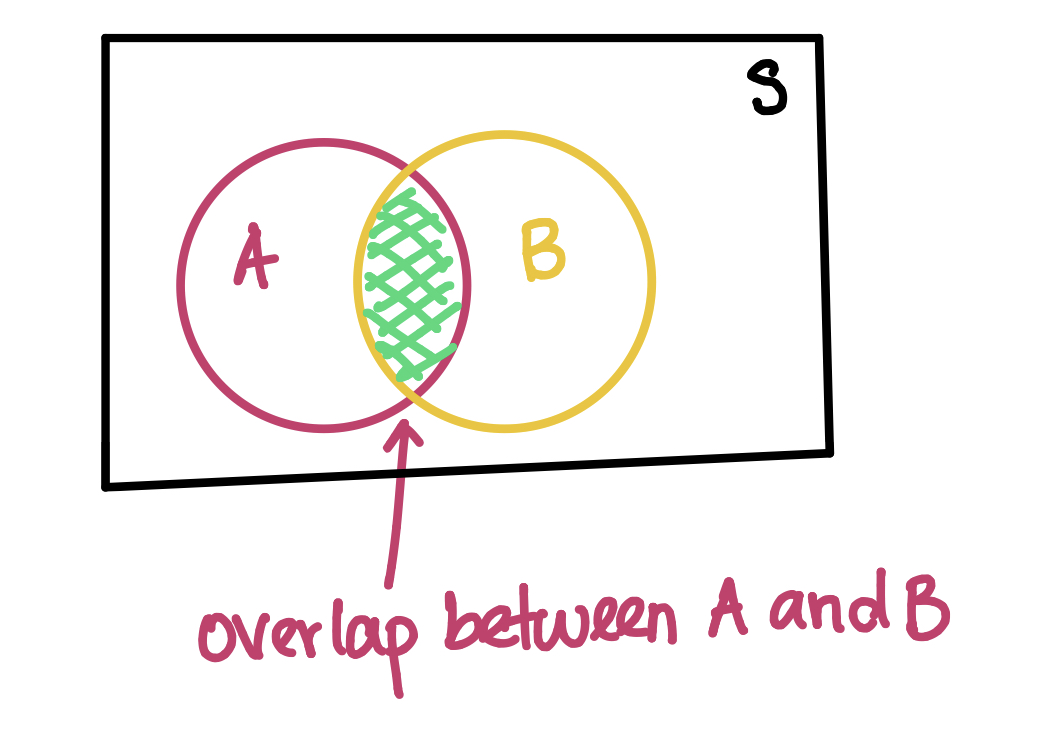 S
A
B
overlap between A and B